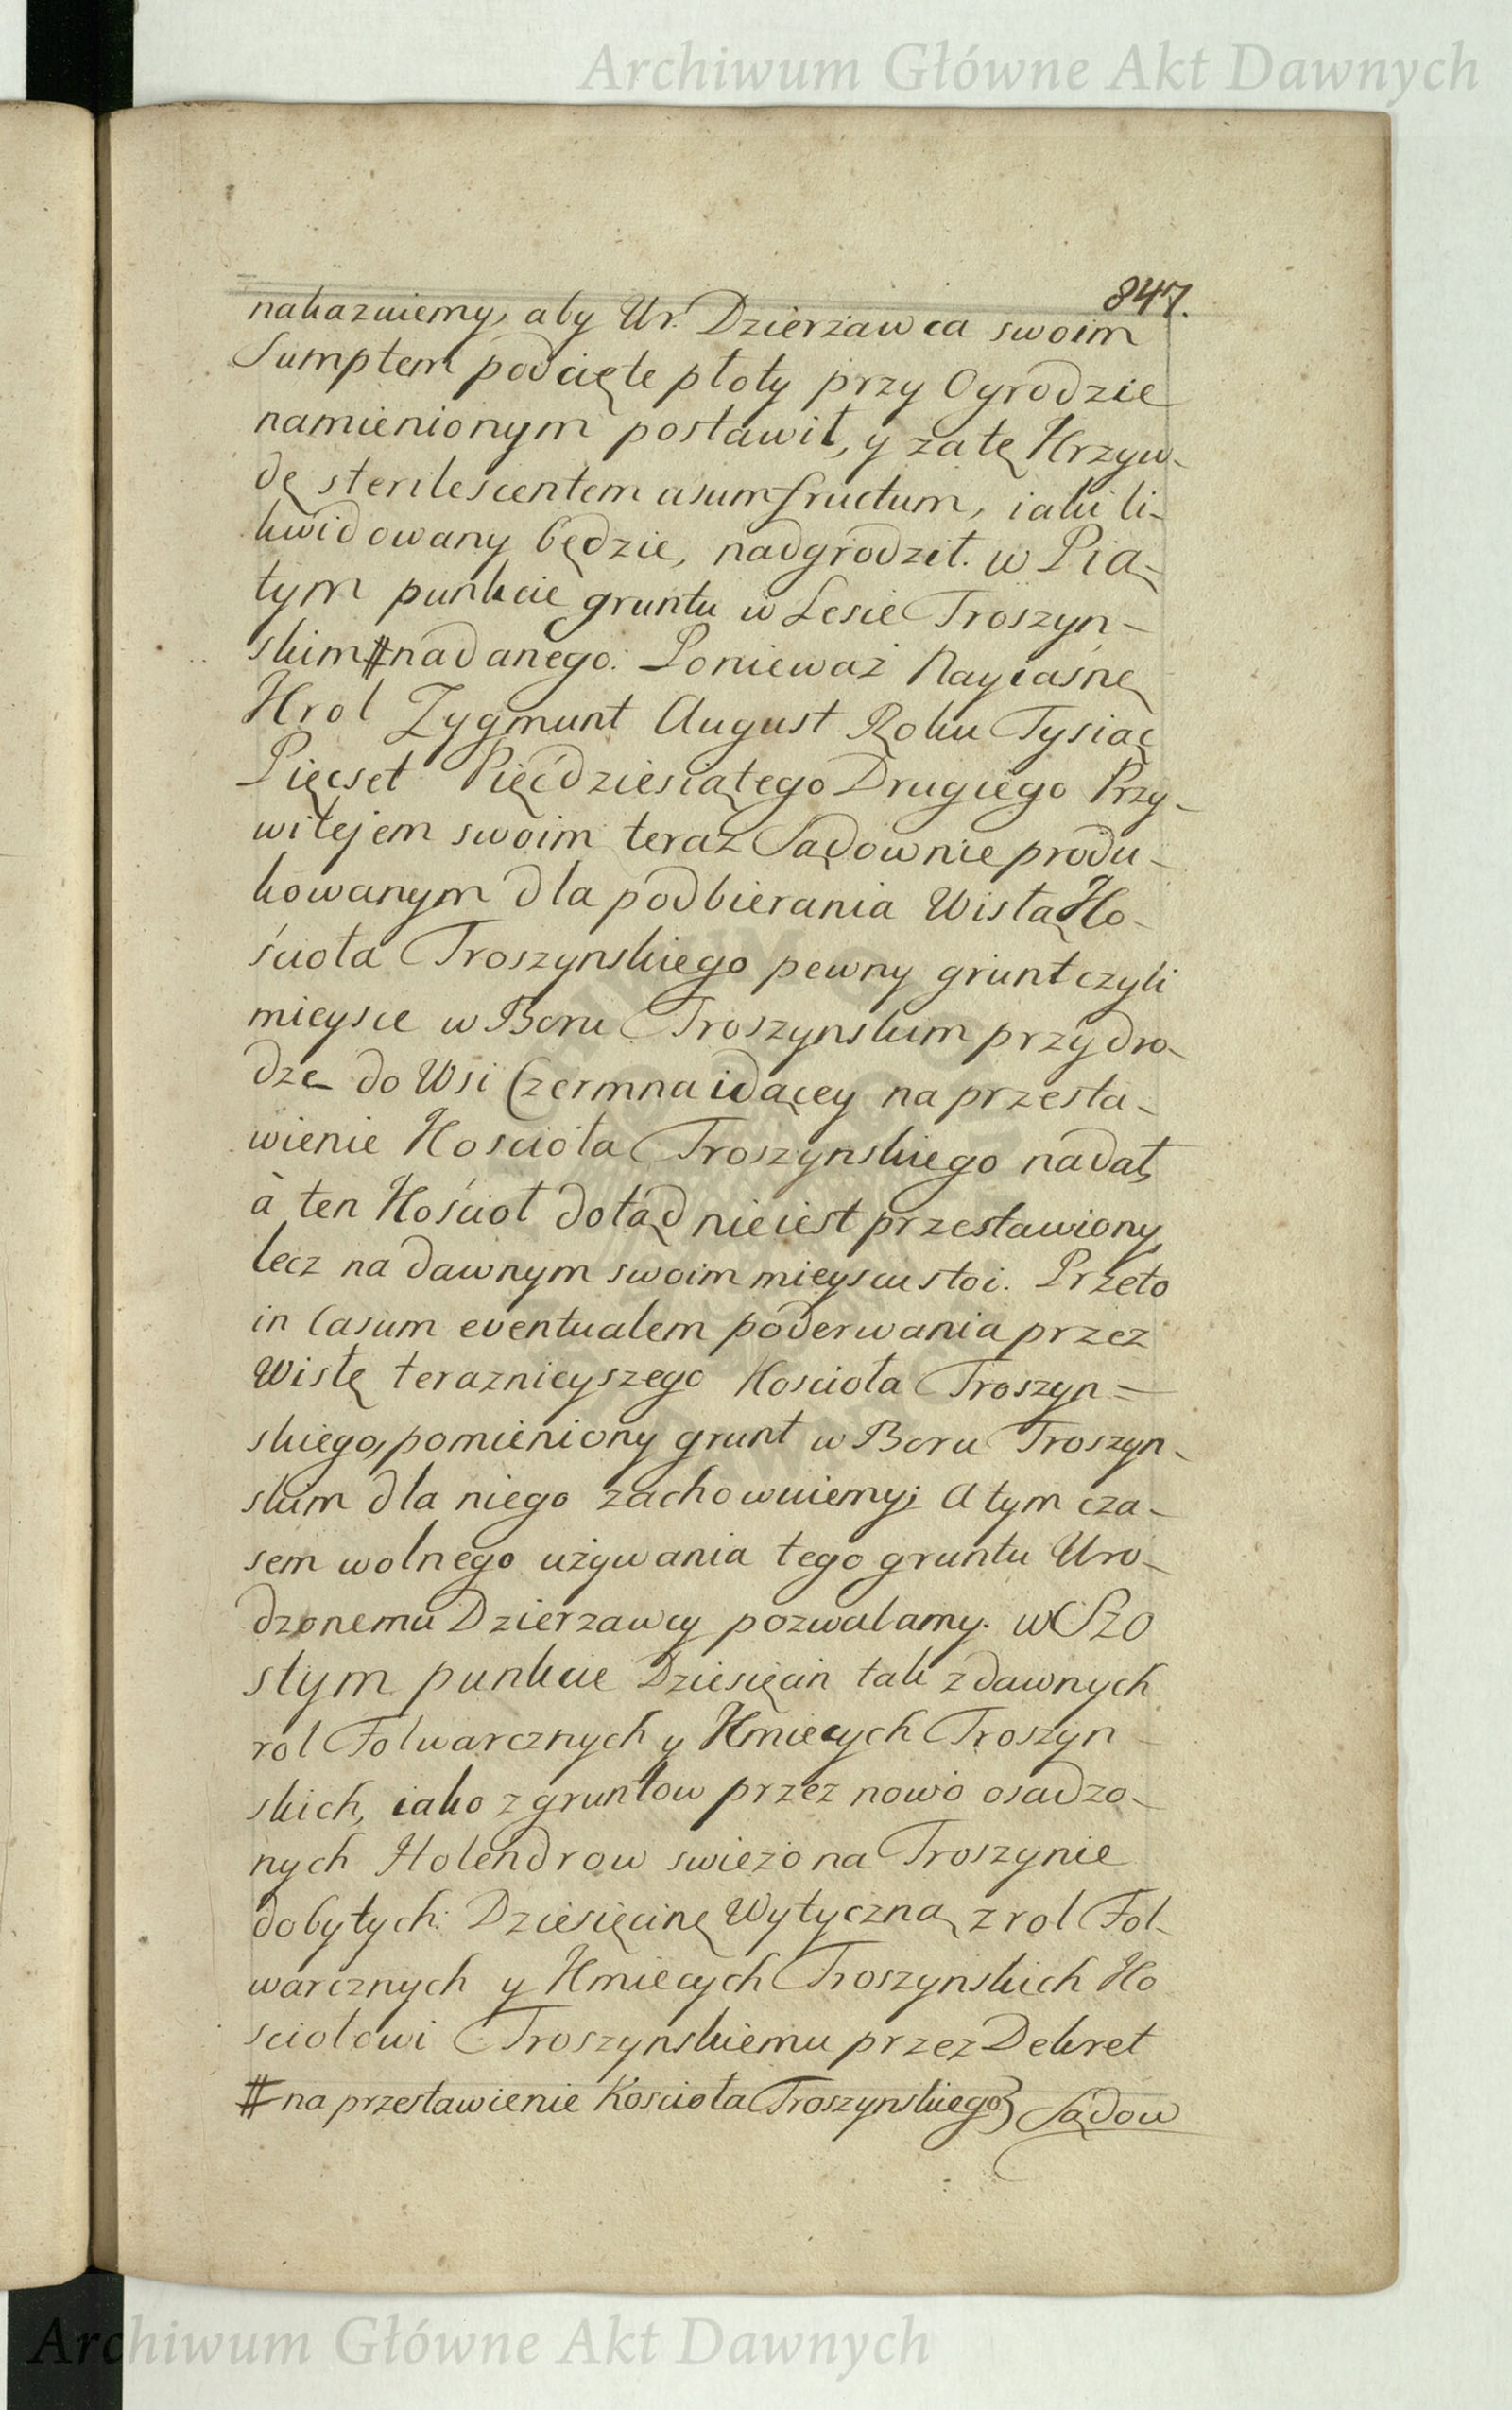 Archiwum Główne Akt Dawnych
847.
nakazuiemy, aby Ur. Dzierzawca swoim
Sumptem podcięte płoty przy Ogrodzie
namienionym postawił, y zatę Krzyw-
dę sterilescentem usumfructum, iaki li-
kwidowany będzie, nadgrodził. w Pią-
tym punkcie gruntu w Lesie Troszyn-
skim # nadanego: Ponieważ Nayiasnę
Krol Zygmunt August Roku Tysiąc
Pięcset Pięćdziesiątego Drugiego Przy-
wilejem swoim teraz Sądownie produ-
kowanym dla podbierania Wisłą Ko-
ścioła Troszynskiego pewny grunt czyli
mieysce w Boru Troszynskim przy dro-
dze do Wsi Czermna idącey na przesta-
wienie Kościoła Troszynskiego nadał,
à ten Kościoł dotąd nieiest przestawiony,
lecz na dawnym swoim mieyscu stoi. Przeto
in Casum eventualem poderwania przez
Wisłę teraznieyszego Kościoła Troszyn=
skiego, pomieniony grunt w Boru Troszyn-
skim dla niego zachowuiemy; A tym cza-
sem wolnego używania tego gruntu Uro-
dzonemu Dzierzawcy pozwalamy. w Szo
stym punkcie Dziesięcin tak z dawnych
rol Folwarcznych y Kmiecych Troszyn
skich, iako z gruntow przez nowo osadzo-
nych Holendrow swieżo na Troszynie
dobytych: Dziesięcinę Wytyczną z rol Fol-
warcznych y Kmiecych Troszynskich Ko
sciołowi Troszynskiemu przez Dekret
# na przestawienie Koscioła Troszynskiego} Sądow
Archiwum Główne Akt Dawnych